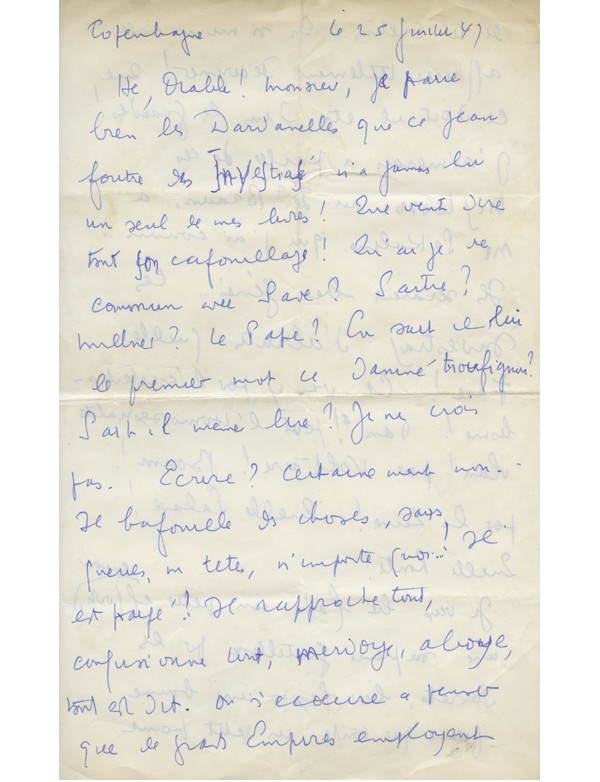 Copenhague le 25 juillet 47
Hé, Diable! Monsieur, je parie
bien les Dardanelles que ce jean
foutre des n'a jamais lu
un seul de mes livres! Que veut dire
tout son cafouillage! Qu'ai je de
commun avec Sade? Sartre?
Miller? Le Pape? En sait il lui
le premier mot ce Damné troufignon?
Sait il même lire? Je ne crois
pas. Ecrire? Certainement non -
Il bafouille des choses, sans
queues, ni têtes, n'importe quoi...! Il
est payé!! Il rapproche tout,
confusionne tout, merdoye, aboye,
tout est dit. On s'écoeure à penser
que de grands Empires emploient